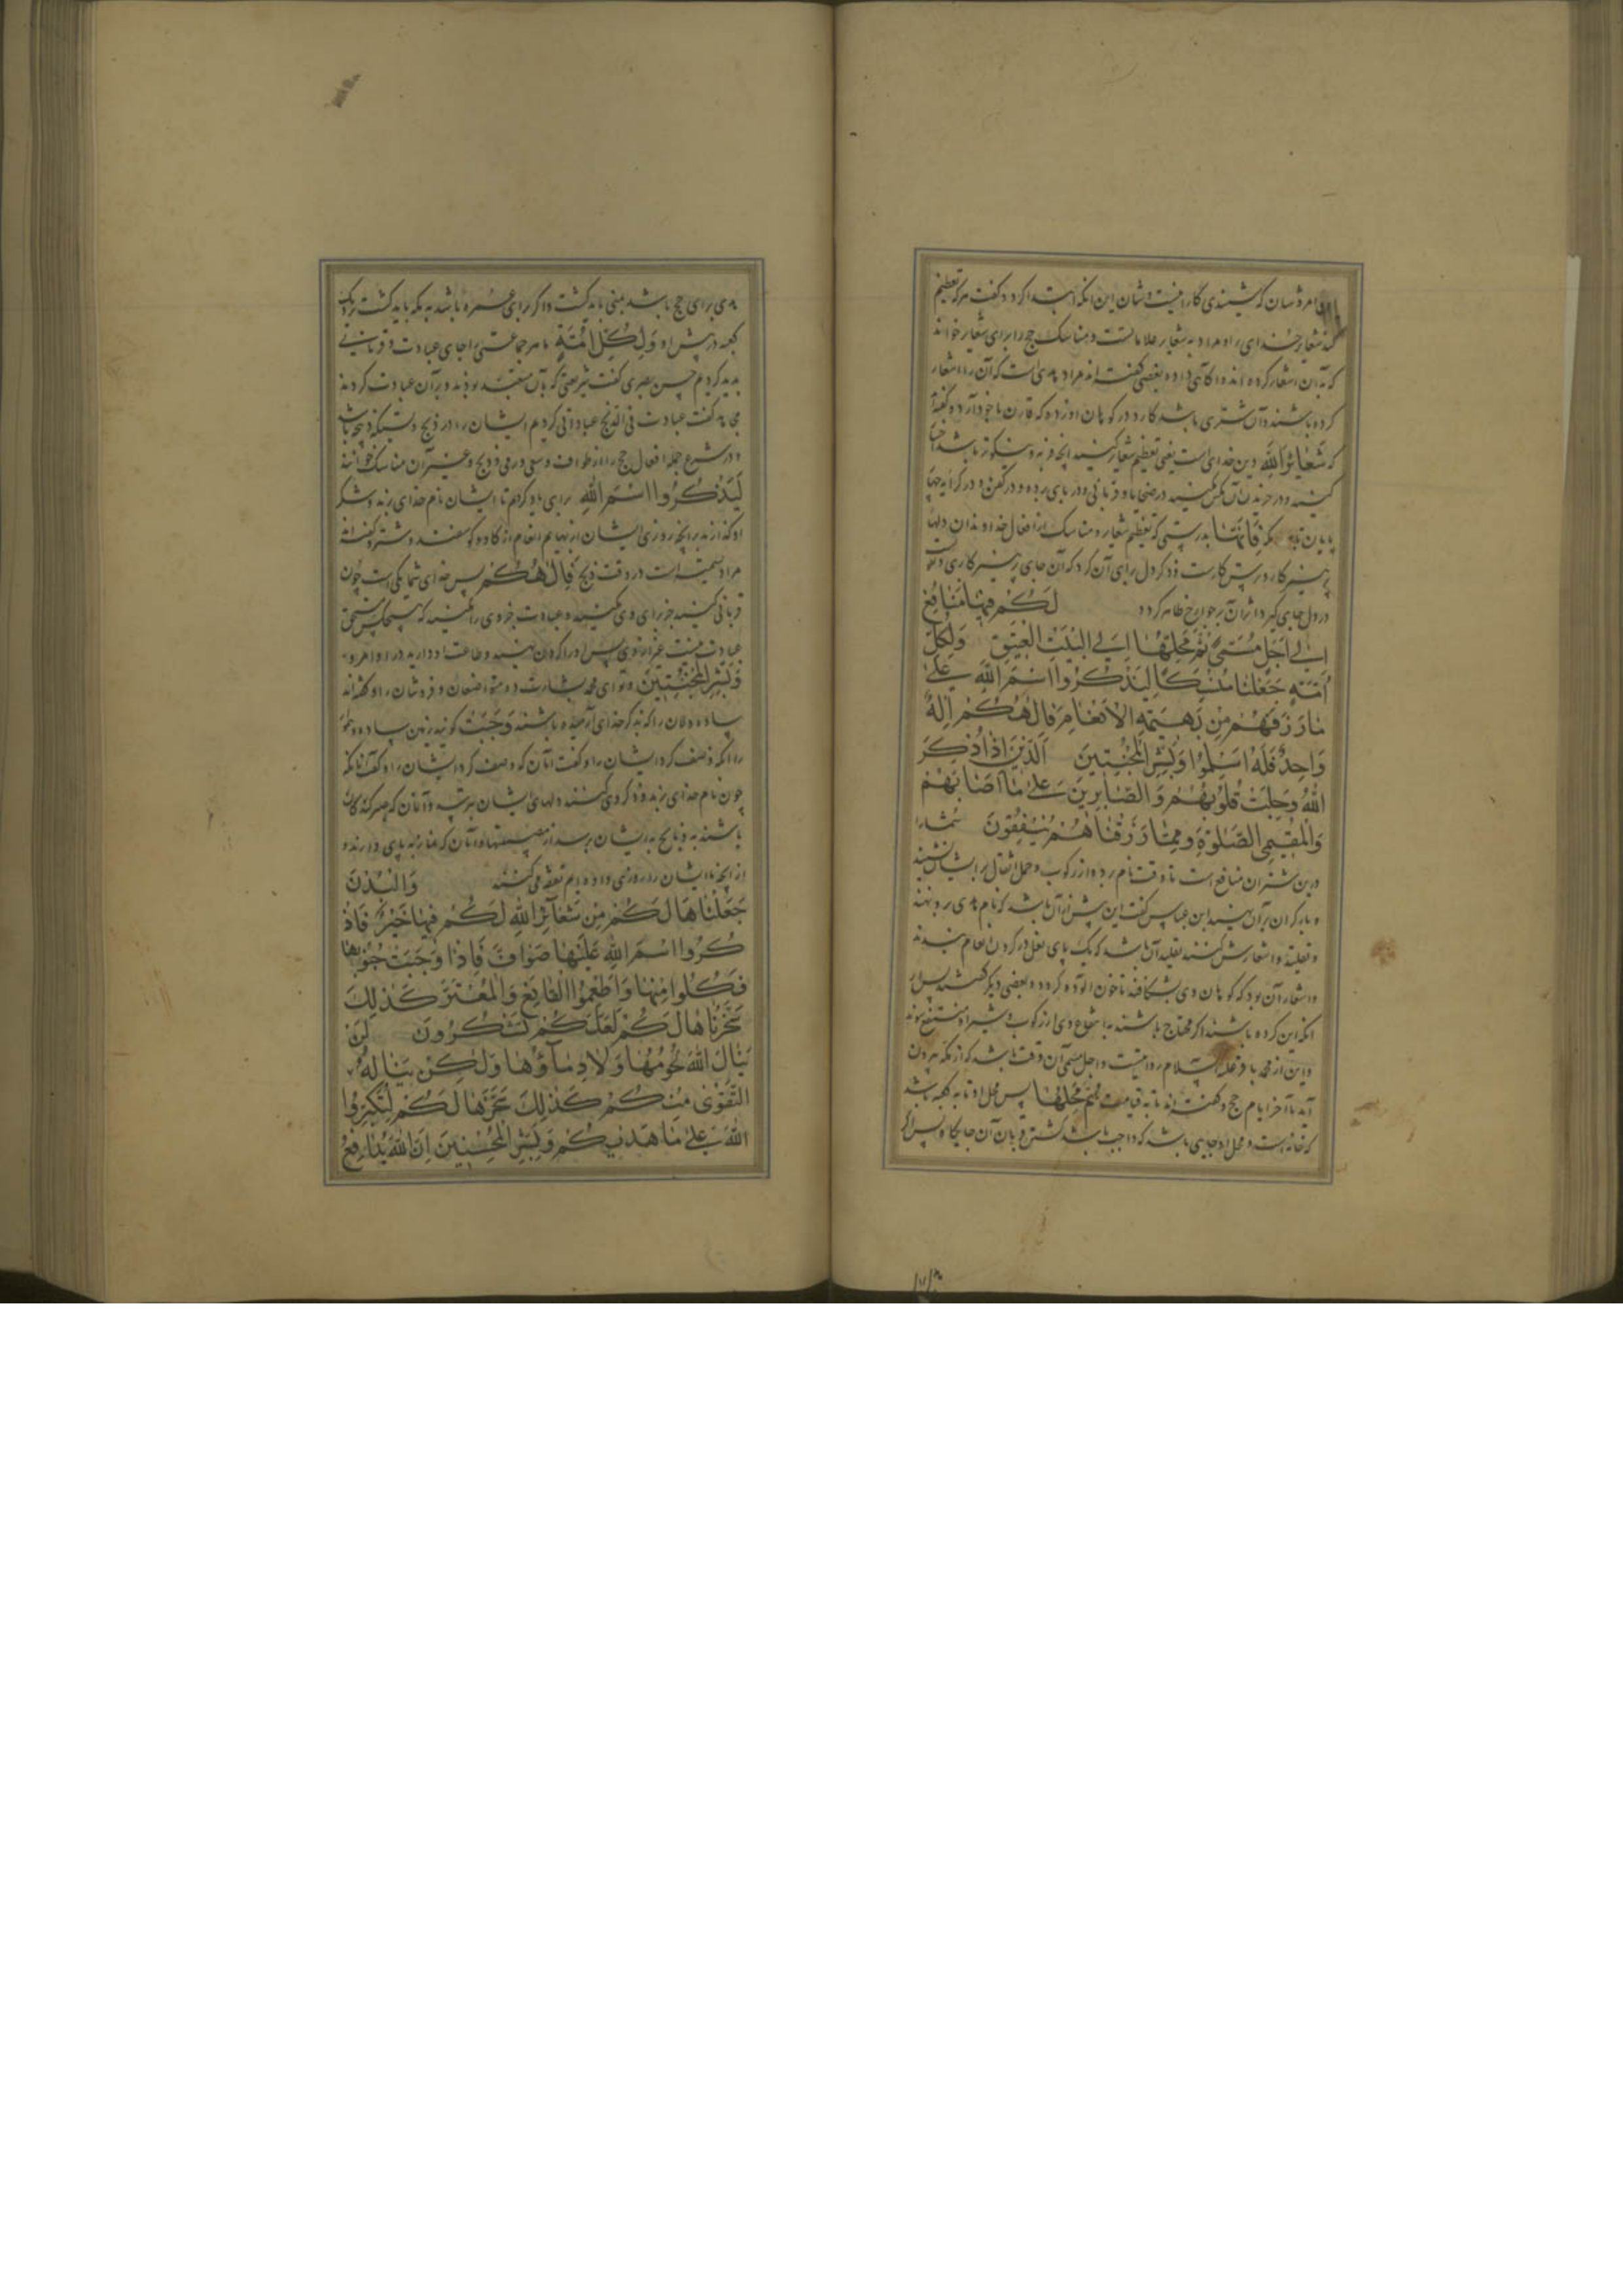 امر و شان که شنیدی کار اینست و شان این آنکه ابتدا کرد و گفت هرکه تعظیم
کند شعایر خدای را و مراد به شعایر علاماتست و مناسک حج را برای شعایر خواند
که بدان اشعار کرده اند و آگاهی داده و بعضی گفته اند مراد هدی است که آن را اشعار
کرده باشند و آن شتری باشد کارد در کوهان او زده که قارن با خود آرد و گفته
که شَعَائِرَ اللهِ دین خدای است یعنی تعظیم شعایر کنید آنچه فربه و نیکوتر باشد
کنید و در خریدن آن مکس مکنید در ضحایا و قربانی و در بهای برده و در کفن و در کرایه
فَإِنَّهَا بدرستی که تعظیم شعایر و مناسک از افعال خداوندان دلها
پرهیزکار و ترس کارست و ذکر دل برای آن کرد که آن جای پرهیزکاری
در دل جای گیرد اثر آن بر جوارح ظاهر گردد لَكُمْ فِيهَا مَنَافِعُ
إِلَى أَجَلٍ مُسَمًّى ثُمَّ مَحِلُّهَا إِلَى الْبَيْتِ الْعَتِيقِ وَلِكُلِّ
أُمَّةٍ جَعَلْنَا مَنْسَكًا لِيَذْكُرُوا اسْمَ اللهِ عَلَى
مَا رَزَقَهُمْ مِنْ بَهِيمَةِ الْأَنْعَامِ فَإِلَهُكُمْ إِلَهٌ
وَاحِدٌ فَلَهُ أَسْلِمُوا وَبَشِّرِ الْمُخْبِتِينَ الَّذِينَ إِذَا ذُكِرَ
اللهُ وَجِلَتْ قُلُوبُهُمْ وَالصَّابِرِينَ عَلَى مَا أَصَابَهُمْ
وَالْمُقِيمِي الصَّلَوةِ وَمِمَّا رَزَقْنَاهُمْ يُنْفِقُونَ شما را
درین شتران منافع است تا وقت نام برده از رکوب و حمل اثقال بر ایشان نشینید
و بار گران بر آن نهید ابن عباس گفت این پیش از آن باشد که نام هدی بر او نهند
و تقلید و اشعارش کنند تقلید آن باشد که یک پای نعل در گردن انعام بندند
و اشعار آن بود که کوهان وی بشکافند تا خون آلوده گردد و بعضی دیگر گفتند پس از
آنکه این کرده باشند اگر محتاج باشند به انتفاع وی از رکوب و شیر او منتفع شوند
و این از محمد باقر علیه السلام روایتست و اجل مسمی آن وقت باشد که از مکه بیرون
آید تا آخر ایام حج و گفته اند تا به قیامت ثُمَّ مَحِلُّهَا پس محل او تا به کعبه باشد
که خانه است و محل او جایی باشد که واجب باشد کشتن قربان آن جایگاه پس اگر
هدی برای حج باشد بمنی باید کشت و اگر برای عمره باشد به مکه باید کشت نزدیک
کعبه در پیش او وَلِكُلِّ أُمَّةٍ ما هر جماعتی را جای عبادت و قربانی
پدید کردیم حسن بصری گفت شریعتی که بآن متعبد بودند و بر آن عبادت کردند
مجاهد گفت عبادت فی الذبح عبادتی کردیم ایشان را در ذبح و نسیکه ذبیحه باشد
و در شرع جمله افعال حج را از طواف و سعی و رمی و ذبح و غیر آن مناسک خوانند
لِيَذْكُرُوا اسْمَ اللهِ برای یاد کردیم تا ایشان نام خدای برند و شکر
او گذارند بر آنچه روزی ایشان از بهایم انعام از گاو و گوسفند و شتر و گفته اند
مراد تسمیه است در وقت ذبح فَإِلَهُكُمْ پس خدای شما یکی است چون
قربانی کنید جز برای وی مکنید و عبادت جز وی را مکنید که هیچکس مستحق
عبادت نیست غیر از وی پس او را گردن نهید و طاعت او دارید در اوامر و
وَبَشِّرِ الْمُخْبِتِينَ و تو ای محمد بشارت ده متواضعان و فروشان را و گفته اند
ساده دلان را که بذکر خدای آرمیده باشند وَجَبَتْ گویند زمین ساده و هموار
را آنکه وصف کرد ایشان را و گفت آنان که وصف کرد ایشان را و گفت آنانکه
چون نام خدای برند و ذکر وی کنند دلهای ایشان بترسد و آنان که صبر کنندگان
باشند به آنچه به ایشان برسد از مصیبتها و آنان که نماز به پای دارند و
از آنچه ما ایشان را روزی داده ایم نفقه می کنند وَالْبُدْنَ
جَعَلْنَاهَا لَكُمْ مِنْ شَعَائِرِ اللهِ لَكُمْ فِيهَا خَيْرٌ فَاذْ
كُرُوا اسْمَ اللهِ عَلَيْهَا صَوَافَّ فَإِذَا وَجَبَتْ جُنُوبُهَا
فَكُلُوا مِنْهَا وَأَطْعِمُوا الْقَانِعَ وَالْمُعْتَرَّ كَذَلِكَ
سَخَّرْنَاهَا لَكُمْ لَعَلَّكُمْ تَشْكُرُونَ لَنْ
يَنَالَ اللهَ لُحُومُهَا وَلَا دِمَآؤُهَا وَلَكِنْ يَنَالُهُ
التَّقْوَى مِنْكُمْ كَذَلِكَ سَخَّرَهَا لَكُمْ لِتُكَبِّرُوا
اللهَ عَلَى مَا هَدَيكُمْ وَبَشِّرِ الْمُحْسِنِينَ إِنَّ اللهَ يُدَافِعُ